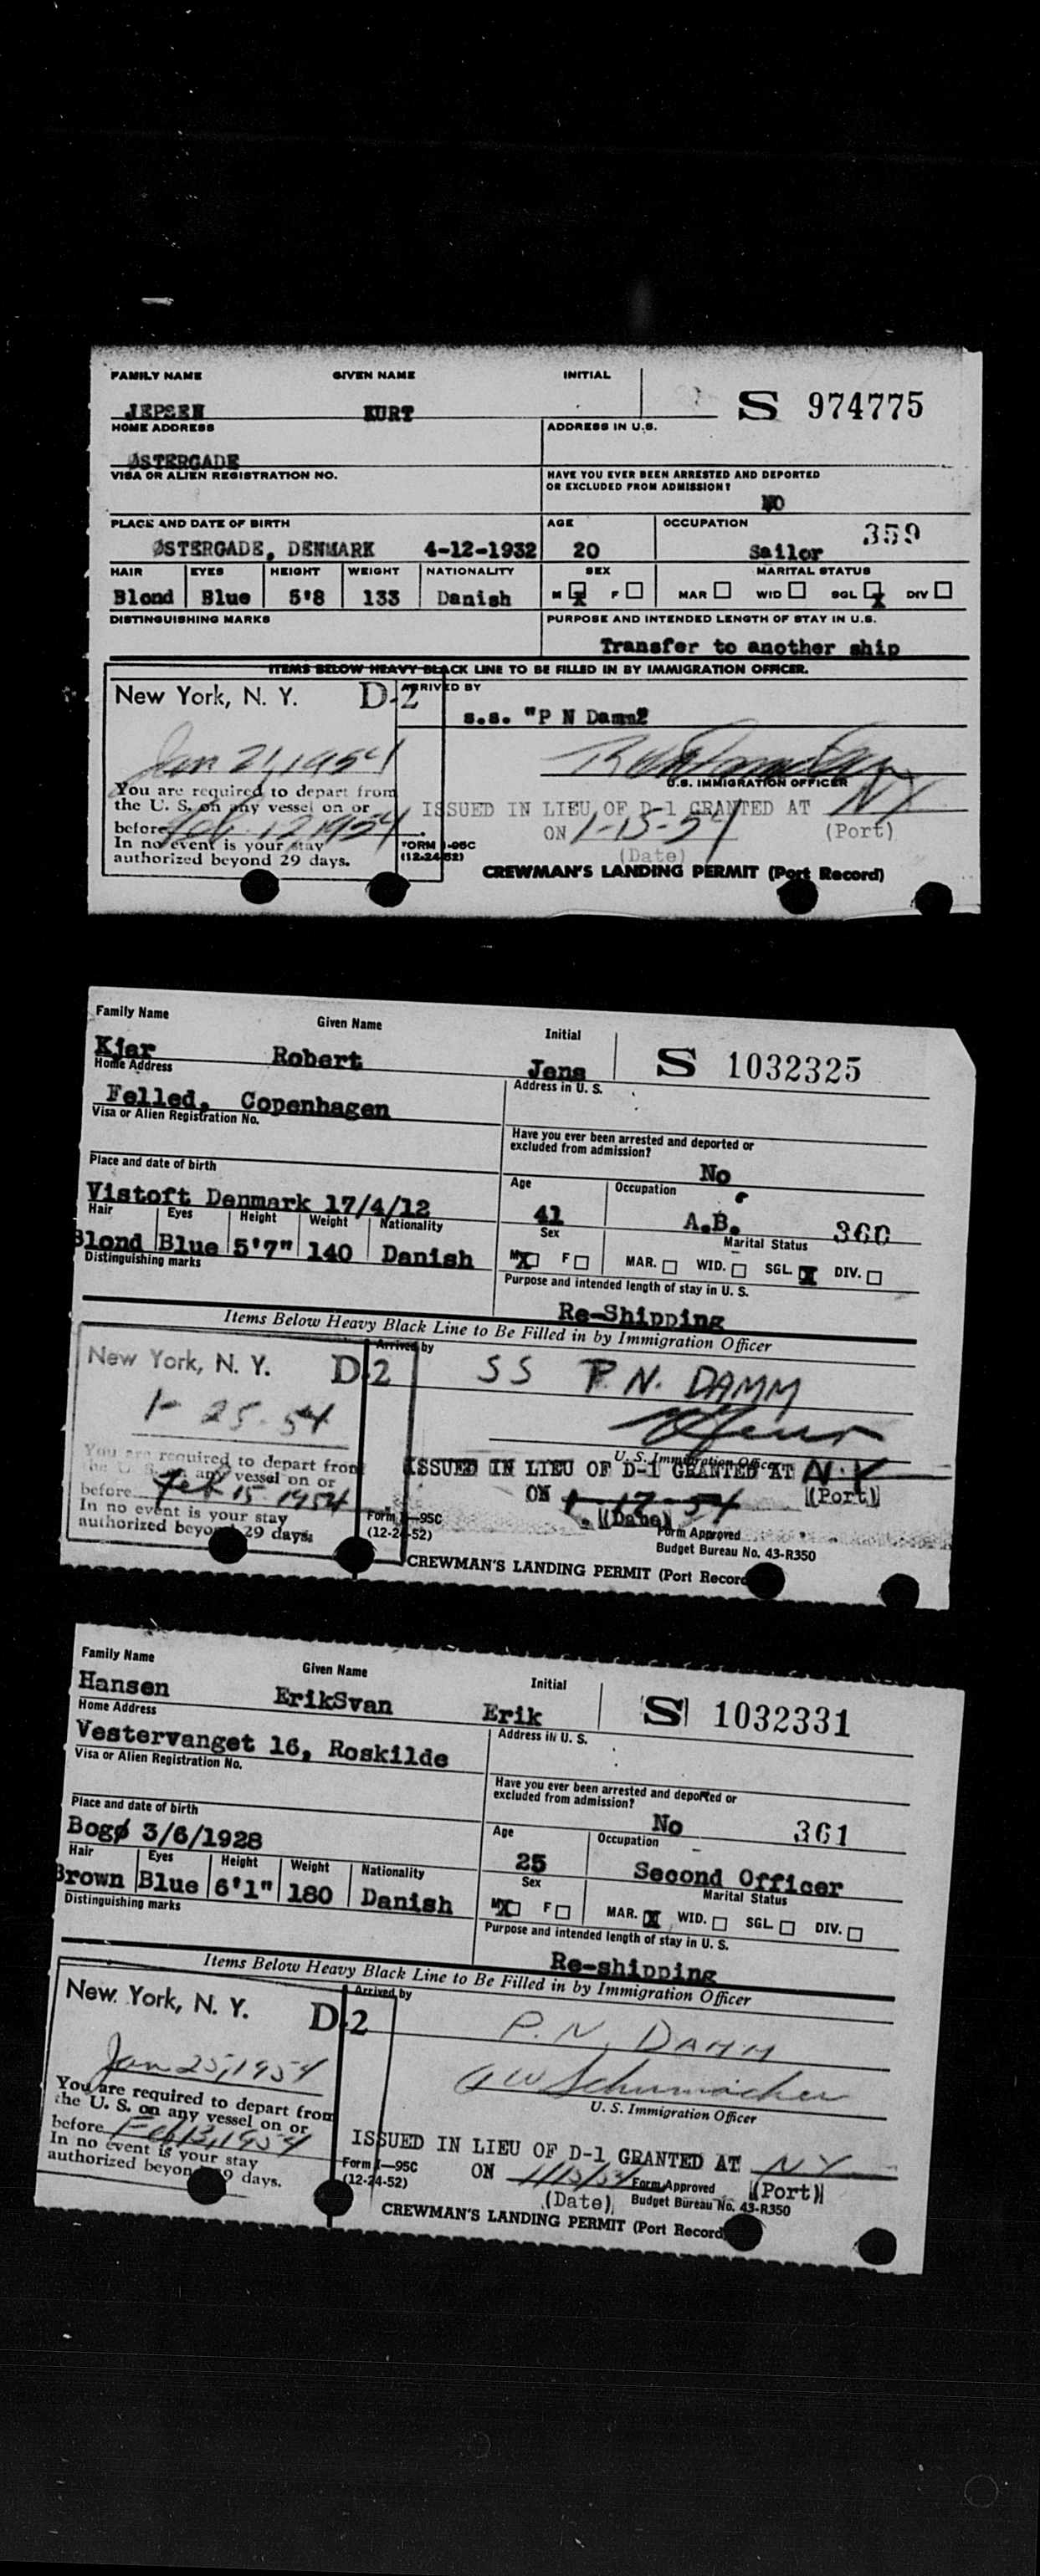 FAMILY NAME GIVEN NAME INITIAL
JEPSEN KURT S 974775
HOME ADDRESS ADDRESS IN U.S.
ØSTERGADE
VISA OR ALIEN REGISTRATION NO. HAVE YOU EVER BEEN ARRESTED AND DEPORTED
OR EXCLUDED FROM ADMISSION?
NO
PLACE AND DATE OF BIRTH AGE OCCUPATION 359
ØSTERGADE, DENMARK 4-12-1932 20 Sailor
HAIR EYES HEIGHT WEIGHT NATIONALITY SEX MARITAL STATUS
Blond Blue 5'8 133 Danish M X F MAR WID SGL X DIV
DISTINGUISHING MARKS PURPOSE AND INTENDED LENGTH OF STAY IN U.S.
Transfer to another ship
ITEMS BELOW HEAVY BLACK LINE TO BE FILLED IN BY IMMIGRATION OFFICER.
New York, N. Y. D-2 ARRIVED BY
s.s. "P N Damm"
Jan 21, 1954
U.S. IMMIGRATION OFFICER
You are required to depart from
the U. S. on any vessel on or ISSUED IN LIEU OF D-1 GRANTED AT NY
before Feb 12 1954 ON 1-15-54 (Port)
In no event is your stay FORM I-95C (Date)
authorized beyond 29 days. (12-24-52)
CREWMAN'S LANDING PERMIT (Port Record)
Family Name Given Name Initial
Kjar Robert Jens S 1032325
Home Address Address in U. S.
Felled, Copenhagen
Visa or Alien Registration No. Have you ever been arrested and deported or
excluded from admission?
No
Place and date of birth Age Occupation
Vistoft Denmark 17/4/12 41 A.B. 360
Hair Eyes Height Weight Nationality Sex Marital Status
Blond Blue 5'7" 140 Danish M X F MAR. WID. SGL. X DIV.
Distinguishing marks Purpose and intended length of stay in U. S.
Re-Shipping
Items Below Heavy Black Line to Be Filled in by Immigration Officer
New York, N. Y. D-2 Arrived by SS P. N. DAMM
1-25-54
U. S. Immigration Officer
You are required to depart from
the U. S. on any vessel on or ISSUED IN LIEU OF D-1 GRANTED AT N.Y
before Feb 15 1954 ON 1-17-54 (Port)
In no event is your stay Form I-95C (Date)
authorized beyond 29 days. (12-24-52) Form Approved
Budget Bureau No. 43-R350
CREWMAN'S LANDING PERMIT (Port Record
Family Name Given Name Initial
Hansen ErikSvan Erik S 1032331
Home Address Address in U. S.
Vestervanget 16, Roskilde
Visa or Alien Registration No. Have you ever been arrested and deported or
excluded from admission?
No 361
Place and date of birth Age Occupation
Bogø 3/6/1928 25 Second Officer
Hair Eyes Height Weight Nationality Sex Marital Status
Brown Blue 6'1" 180 Danish M X F MAR. X WID. SGL. DIV.
Distinguishing marks Purpose and intended length of stay in U. S.
Re-shipping
Items Below Heavy Black Line to Be Filled in by Immigration Officer
New York, N. Y. D-2 Arrived by P. N. DAMM
Jan 25, 1954 Schumacher
U. S. Immigration Officer
You are required to depart from
the U. S. on any vessel on or ISSUED IN LIEU OF D-1 GRANTED AT NY
before Feb 13, 1954 ON 1/15/54 (Port)
In no event is your stay Form I-95C (Date) Form Approved
authorized beyond 29 days. (12-24-52) Budget Bureau No. 43-R350
CREWMAN'S LANDING PERMIT (Port Record